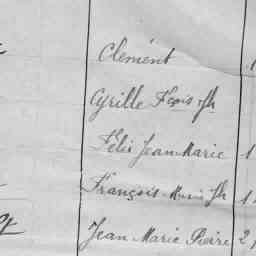 Clément 1
Cyrille Fçois Jh
Félix Jean Marie 1
François Marie Jh 1
Jean Marie Pierre 2